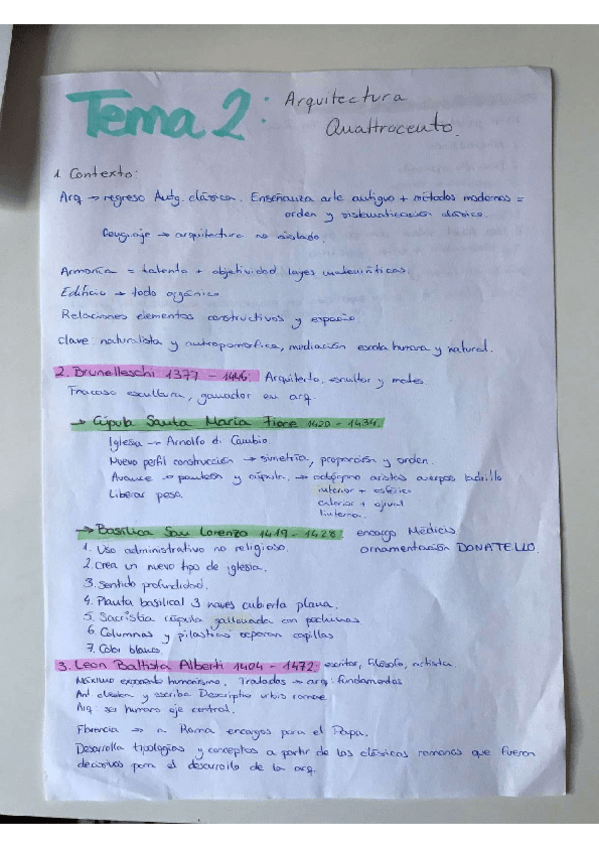 Tema 2: Arquitectura
Quattrocento.
1 Contexto:
Arq → regreso Antg. clásica. Enseñanza arte antiguo + métodos modernos =
orden y sistematización clásico.
Lenguaje → arquitectura no aislado.
Armonía = talento + objetividad leyes matemáticas.
Edificio → todo orgánico
Relaciones elementos constructivos y espacio
Clave: naturalista y antropomorfica, mediación escala humana y natural.
2. Brunelleschi 1377 - 1446: Arquitecto, escultor y
Fracaso escultura, ganador en arq.
→ Cúpula Santa María Fiore 1420 - 1434.
Iglesia → Arnolfo d. Cambio.
Nuevo perfil construcción → simetría, proporción y orden.
Avance → panteón y cúpula. → aristas cuerpos ladrillo
Liberar peso.
interior + esférico
exterior + ojival
linterna.
→ Basílica San Lorenzo 1419 - 1428 encargo Médicis
ornamentación DONATELLO.
1. Uso administrativo no religioso.
2. crea un nuevo tipo de iglesia.
3. Sentido profundidad.
4. Planta basilical 3 naves cubierta plana.
5. Sacristía cúpula gallonada con pechinas
6. Columnas y pilastras separan capillas
7. Color blanco.
3. Leon Battista Alberti 1404 - 1472: escritor, filósofo, artista
Máximo exponente humanismo. Tratados → arq: fundamentos
Ant clásica y escribe Descriptio urbis romae
Arq: ser humano eje central.
Florencia → Roma encargos para el Papa.
Desarrolla tipologías y conceptos a partir de las clásicas romanas que fueron
decisivos para el desarrollo de la arq.